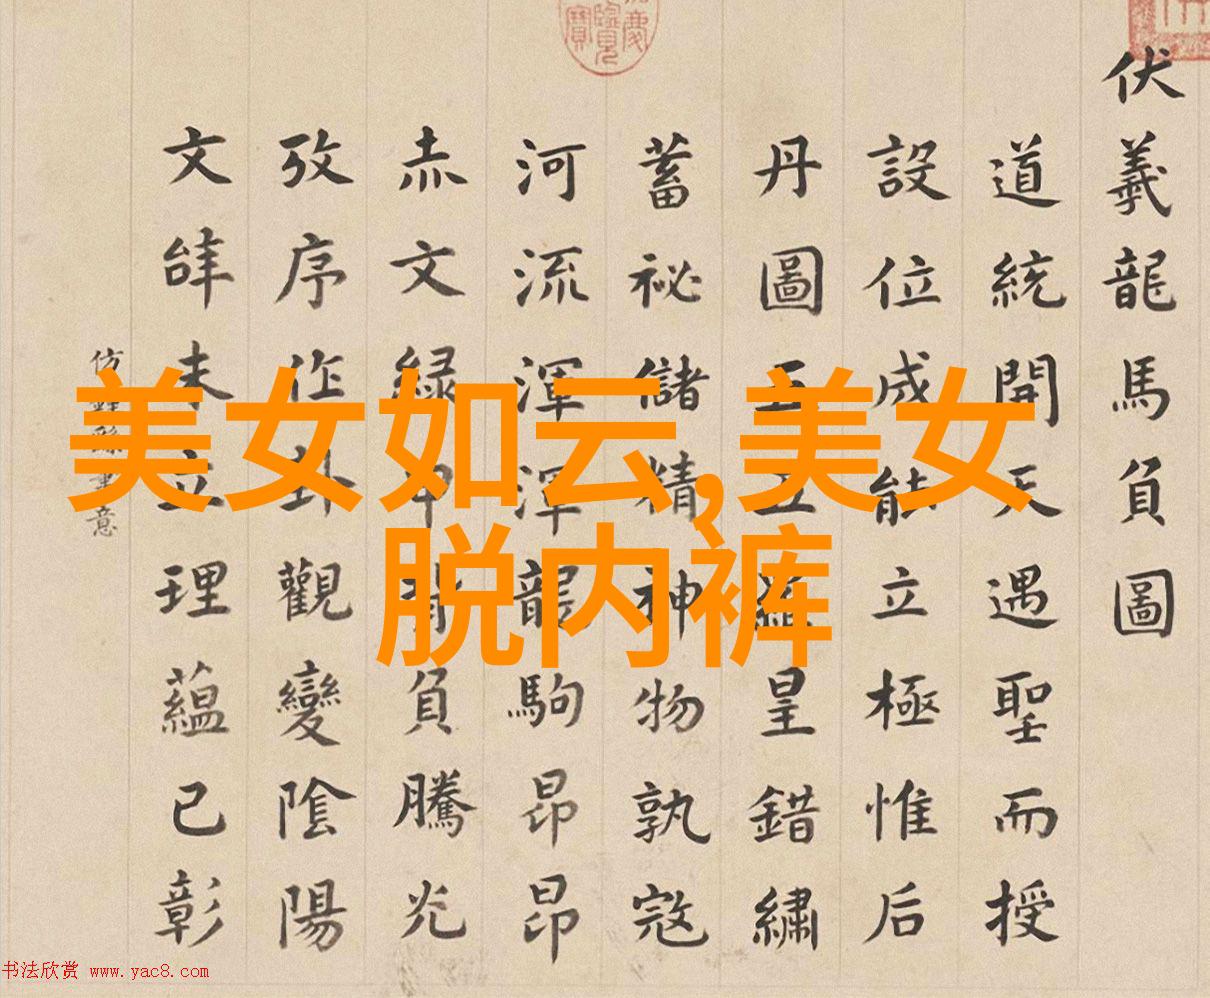 伏羲龍馬負圖
道統開天遇聖而授
設位成能立極惟后
丹圖五五羅皇錯繡
蓄祕儲精神物孰寇
河流渾渾龍駒昂昂
赤文綠甲背負騰光
攷序作卦觀變陰陽
文辞未立理蘊已彰
意
美女如云,美女
脱内裤
书法欣赏 www.yac8.com